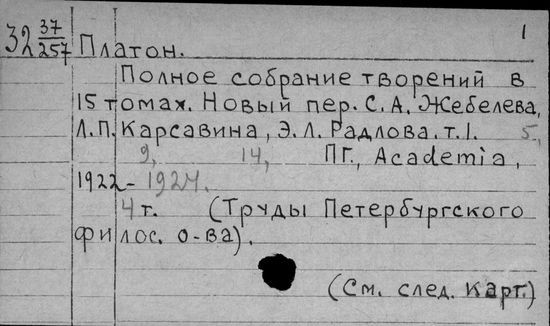 32 37/257 Платон. 1
Полное собрание творений в
15 томах. Новый пер. С. А. Жебелева,
Л. П. Карсавина, Э. Л. Радлова. т. I. 5,
9, 14, ПГ., Academia,
1922-1924.
4 т. (Труды Петербургского
филос. о-ва).
(См. след. карт.)